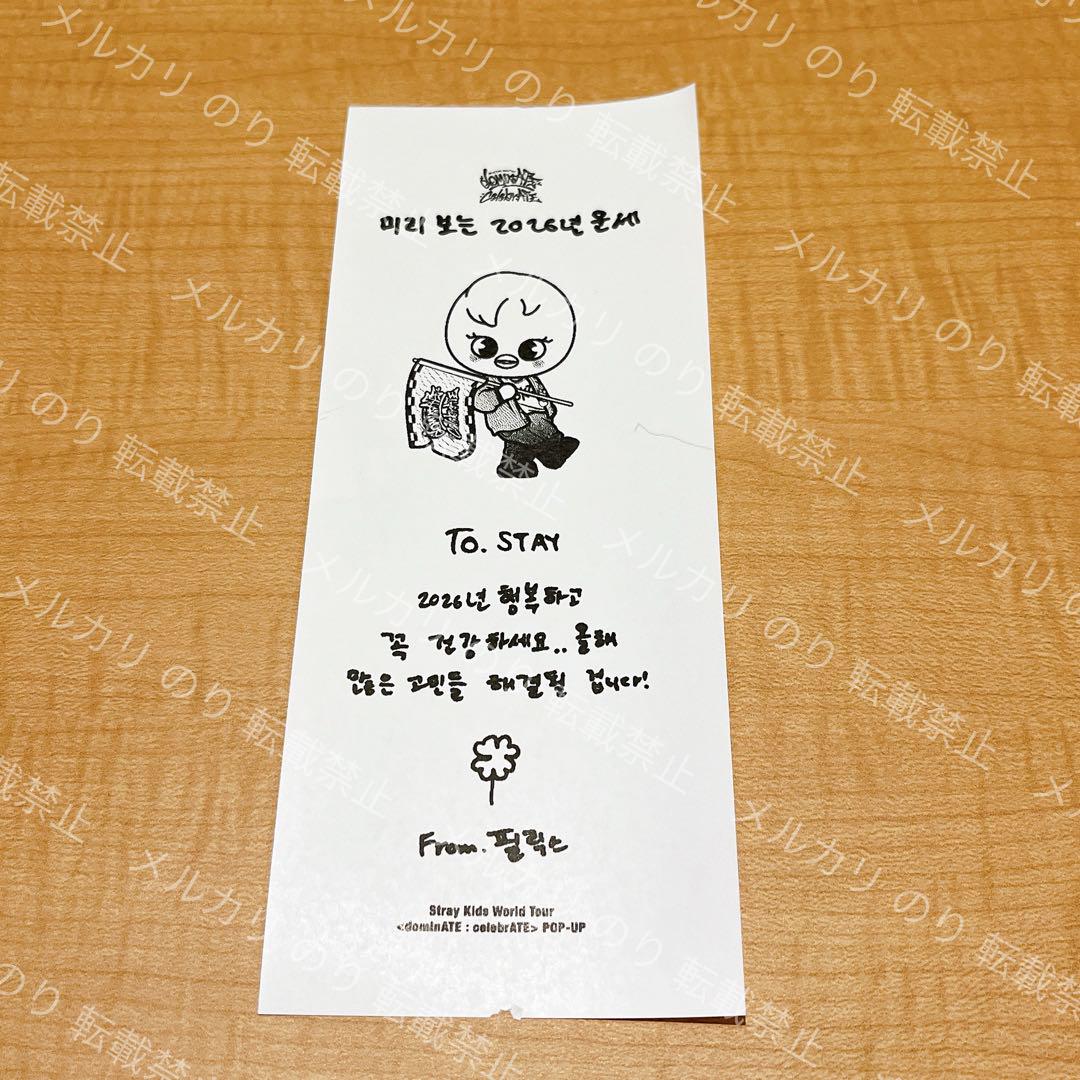 dominATE
celebrATE
미리 보는 2026년 운세
To. STAY
2026년 행복하고
꼭 건강하세요.. 올해
많은 고민들 해결될 겁니다!
From. 필릭스
Stray Kids World Tour
<dominATE : celebrATE> POP-UP
メルカリ のり 転載禁止